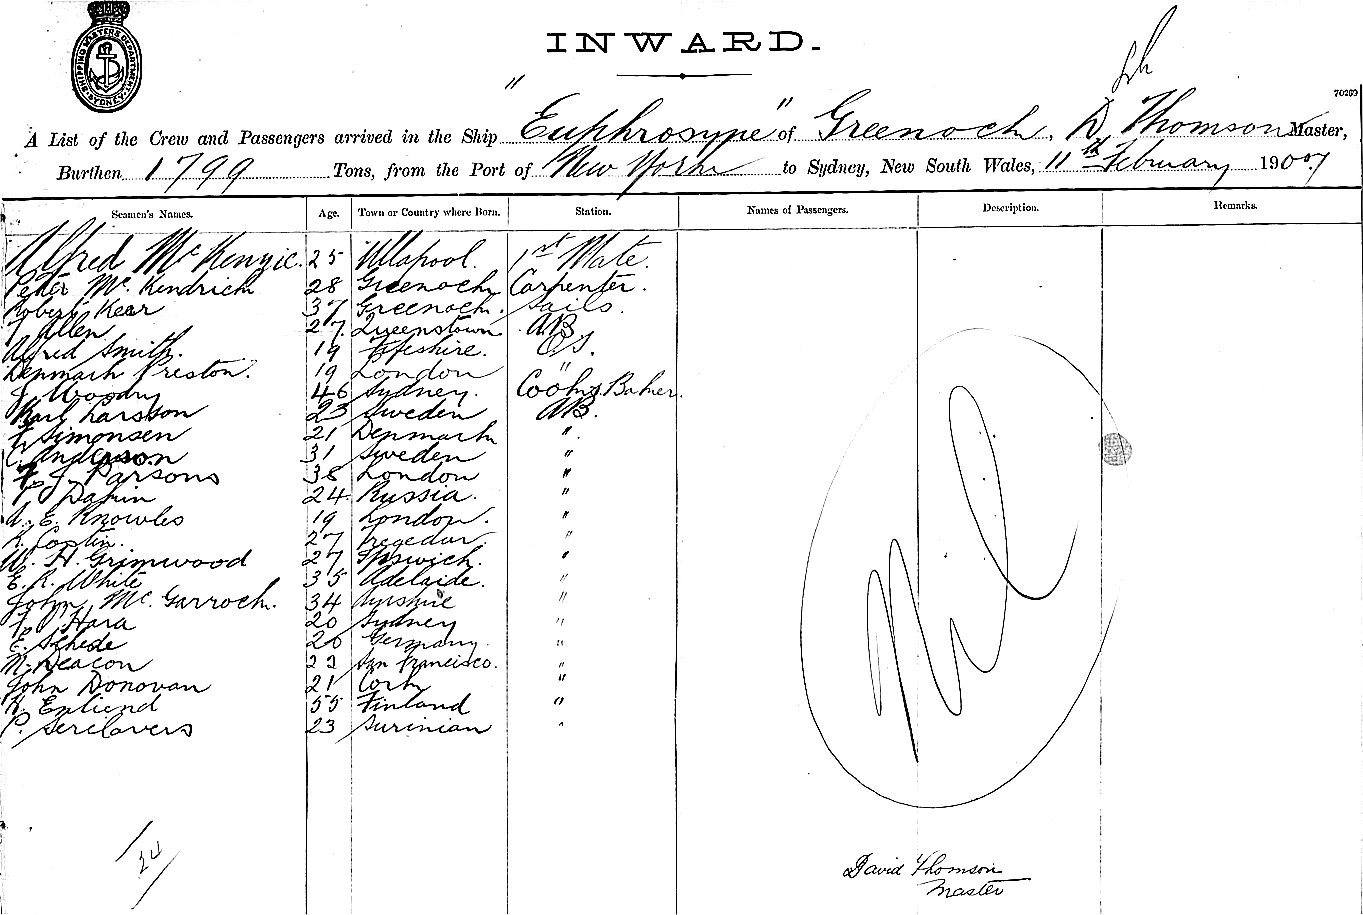 SHIPPING MASTERS DEPARTMENT SYDNEY
INWARD.
70269
A List of the Crew and Passengers arrived in the Ship "Euphrosyne" of Greenock, D. Thomson Master,
Burthen 1799 Tons, from the Port of New York to Sydney, New South Wales, 11th February 1907
Seamen's Names. Age. Town or Country where Born. Station. Names of Passengers. Description. Remarks.
Alfred McKenzie. 25 Ullapool. 1st Mate.
Peter McKendrick 28 Greenock Carpenter.
Robert Kear 37 Greenock. Sails.
Allen 27. Queenstown AB
Alfred Smith. 19 Fifeshire. OS.
Denmark Preston. 19 London "
J Woodry 46 Sydney. Cook & Baker.
Karl Larsson 23 Sweden AB.
Simonsen 21 Denmark "
C. Anderson 31 Sweden "
F J Parsons 38 London "
24 Russia. "
A. E. Knowles 19 London. "
Costin. 27 Tregedar. "
W. H. Grimwood 27 Ipswich. "
E. R. White 35 Adelaide. "
John McGarroch. 34 Ayrshire "
Hara 20 Sydney "
E. Schede 20 Germany. "
N. Deacon 22 San Francisco. "
John Donovan 21 Cork "
K. Enlund 55 Finland "
P. 23 Surinian "
Nil
24
David Thomson
Master